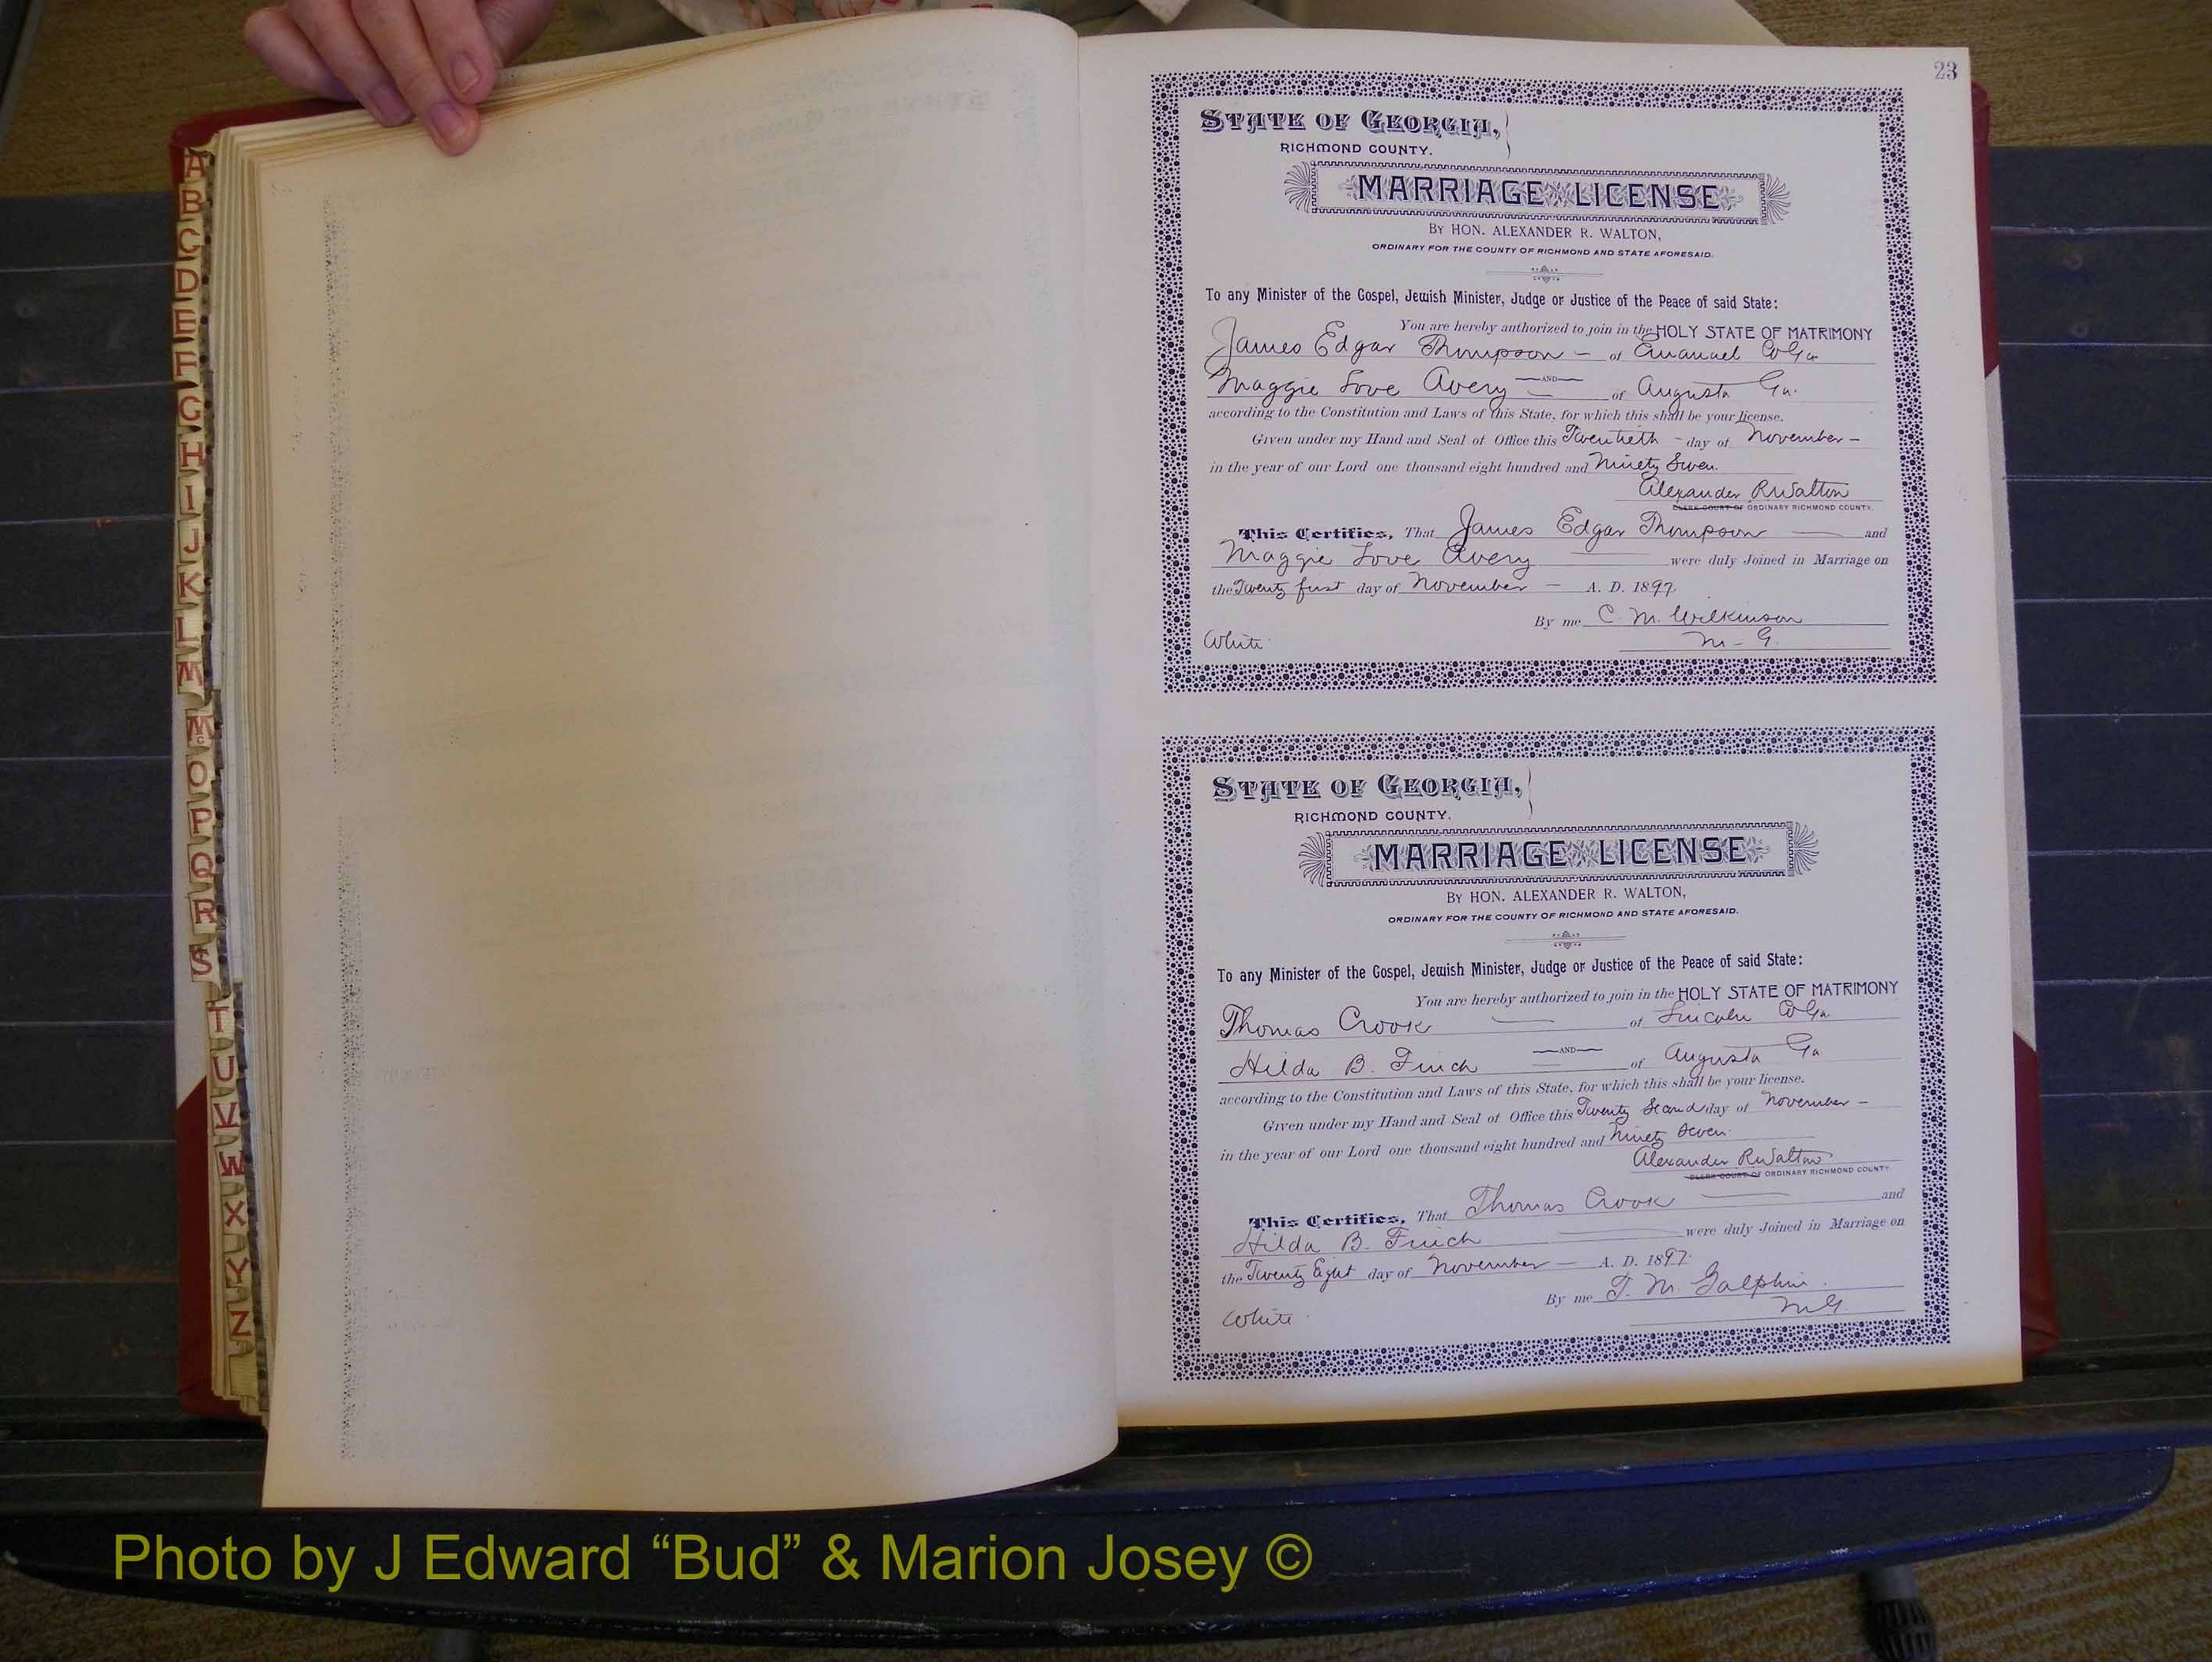 A
B
C
D
E
F
G
H
I
J
K
L
M
Mc
O
P
Q
R
S
T
U
V
W
X
Y
Z
23
STATE OF GEORGIA,
RICHMOND COUNTY.
MARRIAGE LICENSE
BY HON. ALEXANDER R. WALTON,
ORDINARY FOR THE COUNTY OF RICHMOND AND STATE AFORESAID.
To any Minister of the Gospel, Jewish Minister, Judge or Justice of the Peace of said State:
You are hereby authorized to join in the HOLY STATE OF MATRIMONY
James Edgar Thompson - of Emanuel Co Ga
Maggie Love Avery AND of Augusta Ga.
according to the Constitution and Laws of this State, for which this shall be your license.
Given under my Hand and Seal of Office this Twentieth - day of November -
in the year of our Lord one thousand eight hundred and Ninety Seven.
Alexander R Walton
CLERK COURT OF ORDINARY RICHMOND COUNTY.
This Certifies, That James Edgar Thompson and
Maggie Love Avery were duly Joined in Marriage on
the Twenty first day of November - A. D. 1897.
By me C. M. Wilkinson
White M-G.
STATE OF GEORGIA,
RICHMOND COUNTY.
MARRIAGE LICENSE
BY HON. ALEXANDER R. WALTON,
ORDINARY FOR THE COUNTY OF RICHMOND AND STATE AFORESAID.
To any Minister of the Gospel, Jewish Minister, Judge or Justice of the Peace of said State:
You are hereby authorized to join in the HOLY STATE OF MATRIMONY
Thomas Crook of Lincoln Co Ga
Hilda B. Finch AND of Augusta Ga
according to the Constitution and Laws of this State, for which this shall be your license.
Given under my Hand and Seal of Office this Twenty Second day of November -
in the year of our Lord one thousand eight hundred and Ninety Seven.
Alexander R Walton
CLERK COURT OF ORDINARY RICHMOND COUNTY.
This Certifies, That Thomas Crook and
Hilda B. Finch were duly Joined in Marriage on
the Twenty Eight day of November - A. D. 1897.
By me T. M. Galphin.
White MG.
Photo by J Edward “Bud” & Marion Josey ©